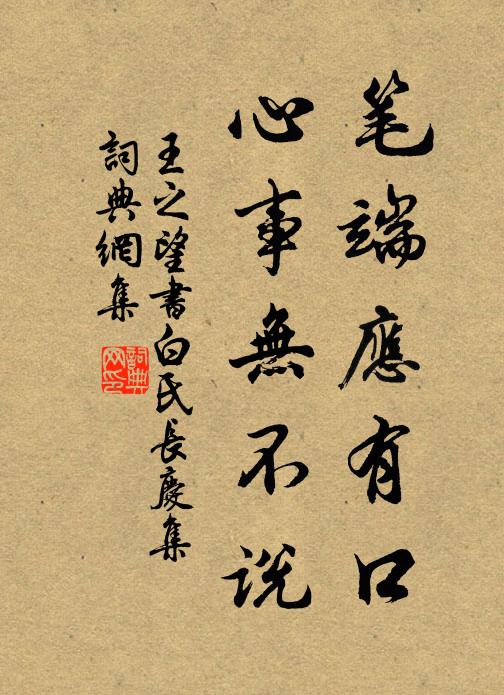 笔端應有口
心事無不説
王之望書白氏長慶集
詞典網集
詞典網印